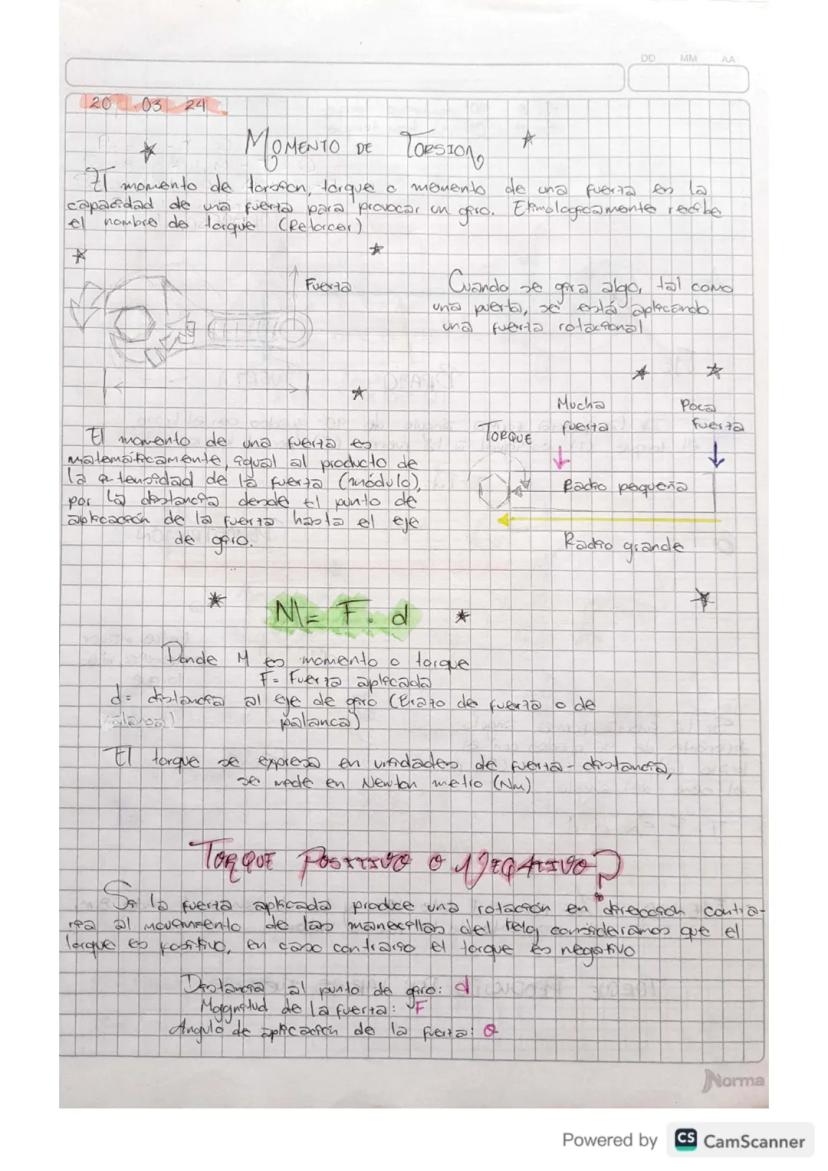 DD MM AA
20 .03 24.
MOMENTO DE TORSION
El momento de torsion, torque o momento de una fuerza es la
capacidad de una fuerza para provocar un giro. Etimologicamente recibe
el nombre de torque (Retorcer)
Fuerza
Cuando se gira algo, tal como
una puerta, se está aplicando
una fuerza rotacional
Mucha
fuerza
Poca
fuerza
TORQUE
Radio pequeño
Radio grande
El momento de una fuerza es
matematicamente, igual al producto de
la intensidad de la fuerza (módulo),
por la distancia desde el punto de
aplicación de la fuerza hasta el eje
de giro.
M= F. d
Donde M es momento o torque
F= Fuerza aplicada
d= distancia al eje de giro (Brazo de fuerza o de
palanca)
El torque se expresa en unidades de fuerza-distancia,
se mide en Newton metro (Nm)
TORQUE POSITIVO O NEGATIVO?
Si la fuerza aplicada produce una rotación en dirección contra-
rea al movimiento de las manecillas del reloj consideramos que el
torque es positivo, en caso contrario el torque es negativo
Distancia al punto de giro: d
Magnitud de la fuerza: F
Angulo de aplicación de la fuerza: θ
Norma
Powered by CS CamScanner